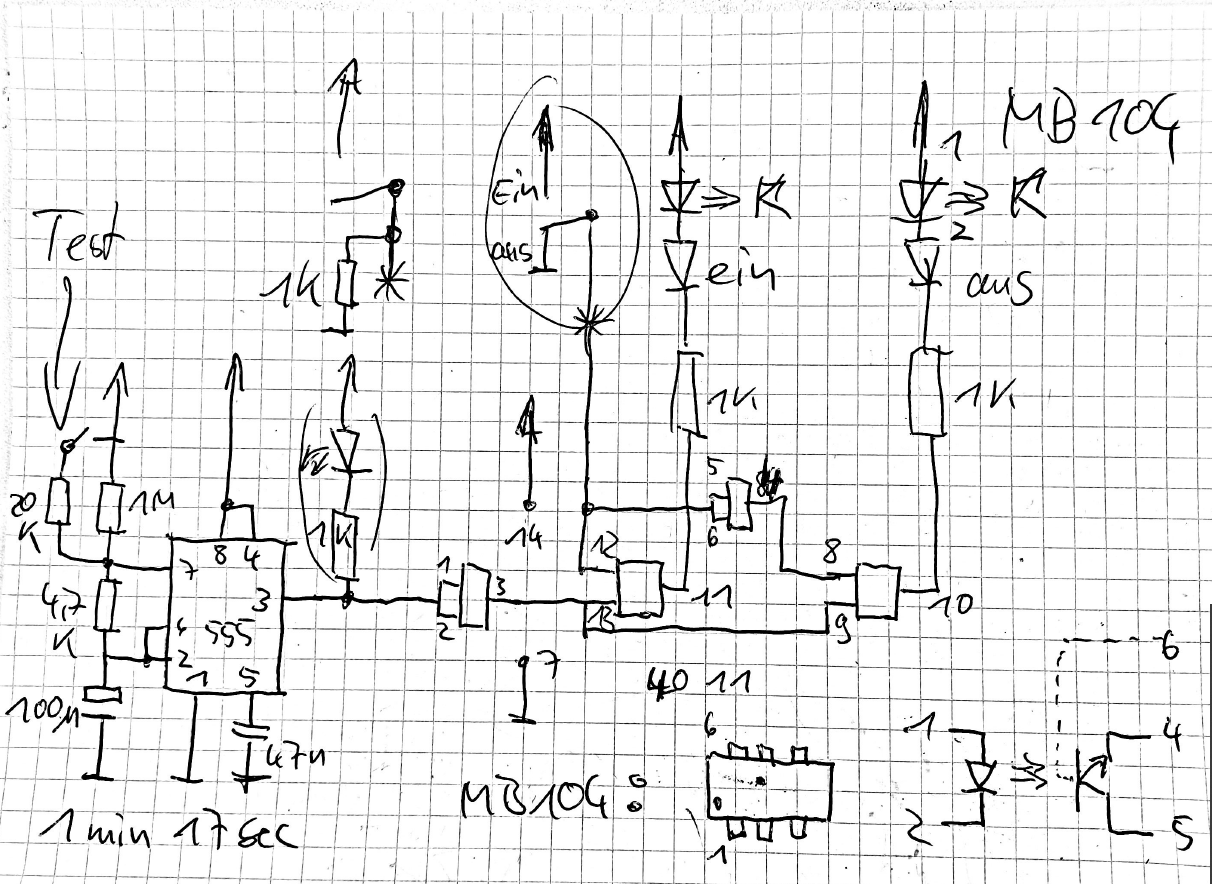 MB 104
1
Ein
K
K
Test
2
aus
ein
aus
1K
1K
1K
5
20
K
1M
1K
14
6
8 4
12
8
7
1
3
3
11
10
4,7
K
13
9
6
555
2
2
1 5
7
6
100µ
40 11
47n
6
1
4
MB104:
2
5
1 min 17 sec
1